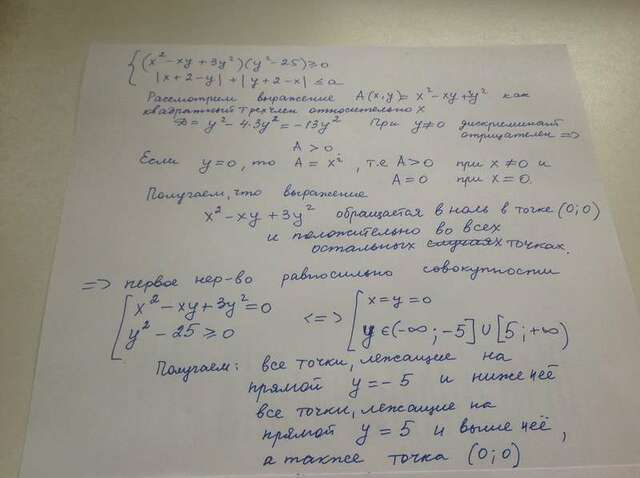 (x² - xy + 3y²)(y² - 25) ≥ 0
|x + 2 - y| + |y + 2 - x| ≤ a
Рассмотрим выражение A(x,y) = x² - xy + 3y² как
квадратный трёхчлен относительно x
D = y² - 4·3y² = -13y² При y ≠ 0 дискриминант
отрицателен =>
A > 0
Если y = 0, то A = x², т.е A > 0 при x ≠ 0 и
A = 0 при x = 0.
Получаем, что выражение
x² - xy + 3y² обращается в ноль в точке (0;0)
и положительно во всех
остальных случаях точках.
=> первое нер-во равносильно совокупности
x² - xy + 3y² = 0
y² - 25 ≥ 0
<=>
x = y = 0
y ∈ (-∞; -5] ∪ [5; +∞)
Получаем: все точки, лежащие на
прямой y = -5 и ниже неё
все точки, лежащие на
прямой y = 5 и выше неё,
а также точка (0;0)